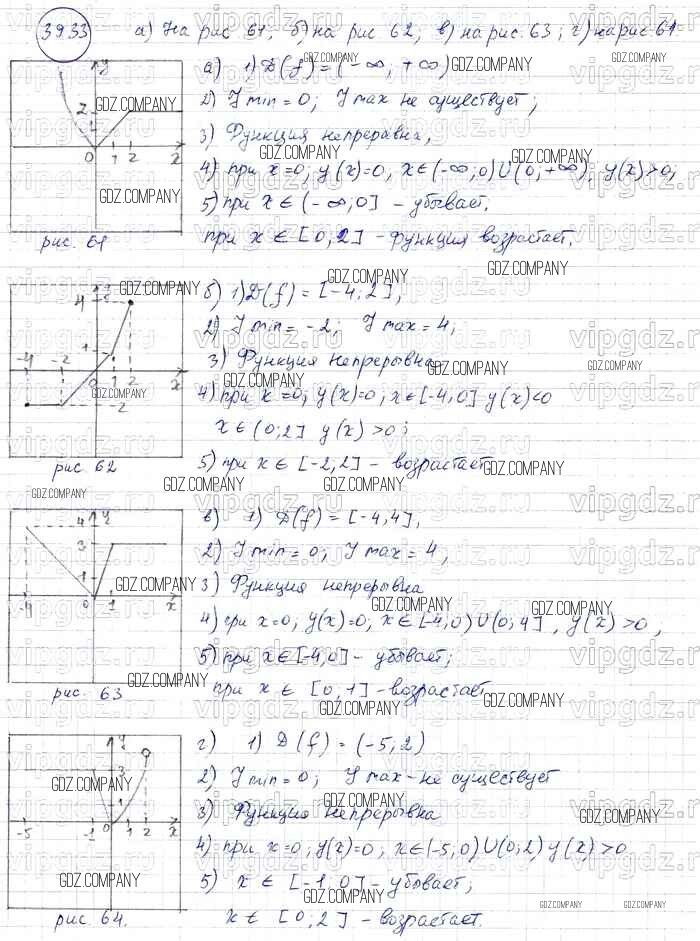 3933 а) На рис 61; б) на рис 62; в) на рис. 63; г) на рис 61
y
2
0 1 2 x
рис. 61
а) 1) D(f) = (-∞, +∞)
2) Y min = 0; Y max не существует;
3) Функция непреравна,
4) при x=0; y(x)=0, x∈(-∞;0)∪(0;+∞), y(x)>0;
5) при x∈(-∞;0] - убывает.
при x∈[0,2] - функция возрастает.
4
1
-4 -2 0 1 2 x
-2
рис 62
б) 1) D(f) = [-4; 2],
2) Y min = -2; Y max = 4;
3) Функция непрерывна
4) при x=0; y(x)=0; x∈[-4,0] y(x)<0
x∈(0;2] y(x)>0;
5) при x∈[-2,2] - возрастает
4 y
3
1
-4 0 1 x
рис. 63
в) 1) D(f) = [-4,4],
2) Y min = 0; Y max = 4,
3) Функция непрерывна
4) при x=0; y(x)=0, x∈[-4,0)∪(0;4], y(x)>0;
5) при x∈[-4,0] - убывает;
при x∈[0,1] - возрастает
y
3
1
-5 -1 0 1 2 x
рис. 64.
г) 1) D(f) = (-5; 2)
2) Y min = 0; Y max - не существует
3) Функция непрерывна
4) при x=0; y(x)=0; x∈(-5,0)∪(0;2) y(x)>0
5) x∈[-1,0] - убывает;
x∈[0;2] - возрастает.
GDZ.COMPANY
vipgdz.ru